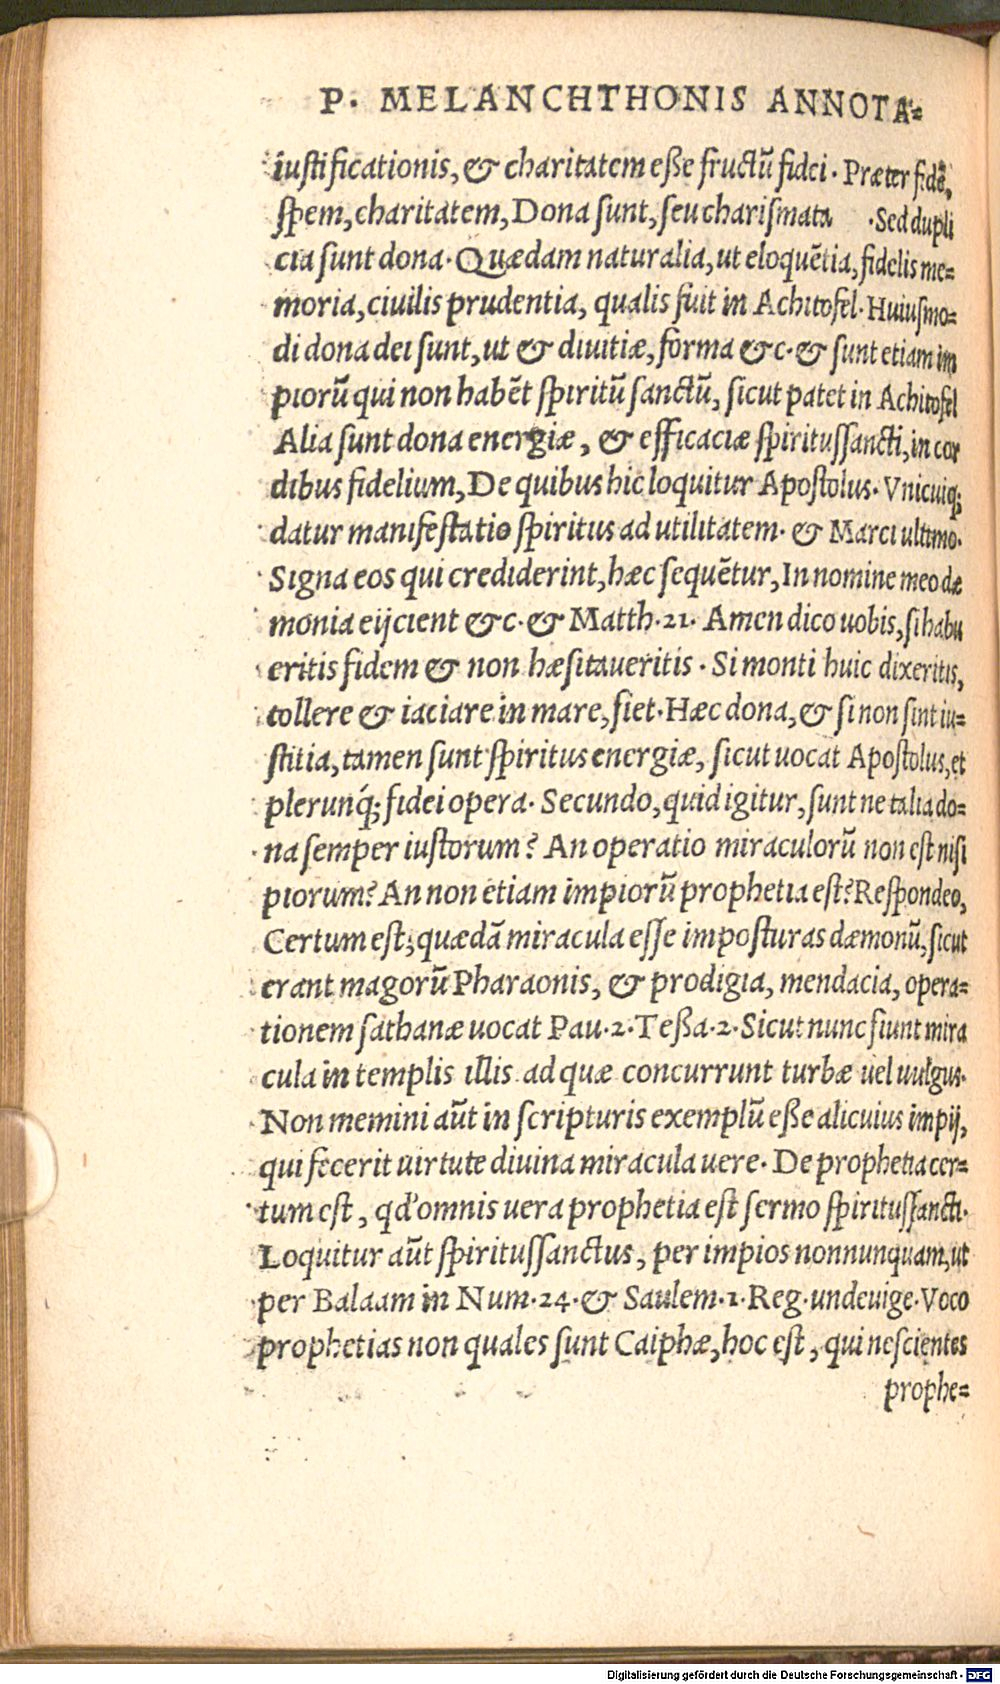 P. MELANCHTHONIS ANNOTA=
iustificationis, & charitatem eße fructū fidei. Præter fidē,
spem, charitatem, Dona sunt, seu charismata. Sed dupli
cia sunt dona. Quædam naturalia, ut eloquētia, fidelis me=
moria, ciuilis prudentia, qualis fuit in Achitofel. Huiusmo=
di dona dei sunt, ut & diuitiæ, forma &c. & sunt etiam im
piorū qui non habēt spiritū sanctū, sicut patet in Achitofel
Alia sunt dona energiæ, & efficaciæ spiritussancti, in cor
dibus fidelium, De quibus hic loquitur Apostolus. Vnicuiq;
datur manifestatio spiritus ad utilitatem. & Marci ultimo.
Signa eos qui crediderint, hæc sequētur, In nomine meo dæ
monia eijcient &c. & Matth. 21. Amen dico uobis, si habu
eritis fidem & non hæsitaueritis. Si monti huic dixeritis,
tollere & iaciare in mare, fiet. Hæc dona, & si non sint iu=
stitia, tamen sunt spiritus energiæ, sicut uocat Apostolus, et
plerunq́; fidei opera. Secundo, quid igitur, sunt ne talia do=
na semper iustorum? An operatio miraculorū non est nisi
piorum? An non etiam impiorū prophetia est? Respondeo,
Certum est; quædā miracula esse imposturas dæmonū, sicut
erant magorū Pharaonis, & prodigia, mendacia, opera=
tionem sathanæ uocat Pau. 2. Teßa. 2. Sicut nunc fiunt mira
cula in templis illis ad quæ concurrunt turbæ uel uulgus.
Non memini aūt in scripturis exemplū eße alicuius impij,
qui fecerit uirtute diuina miracula uere. De prophetia cer=
tum est, qd' omnis uera prophetia est sermo spiritussancti.
Loquitur aūt spiritussanctus, per impios nonnunquam, ut
per Balaam in Num. 24. & Saulem. 1. Reg. undeuige. Voco
prophetias non quales sunt Caiphæ, hoc est, qui nescientes
prophe=
Digitalisierung gefördert durch die Deutsche Forschungsgemeinschaft - DFG